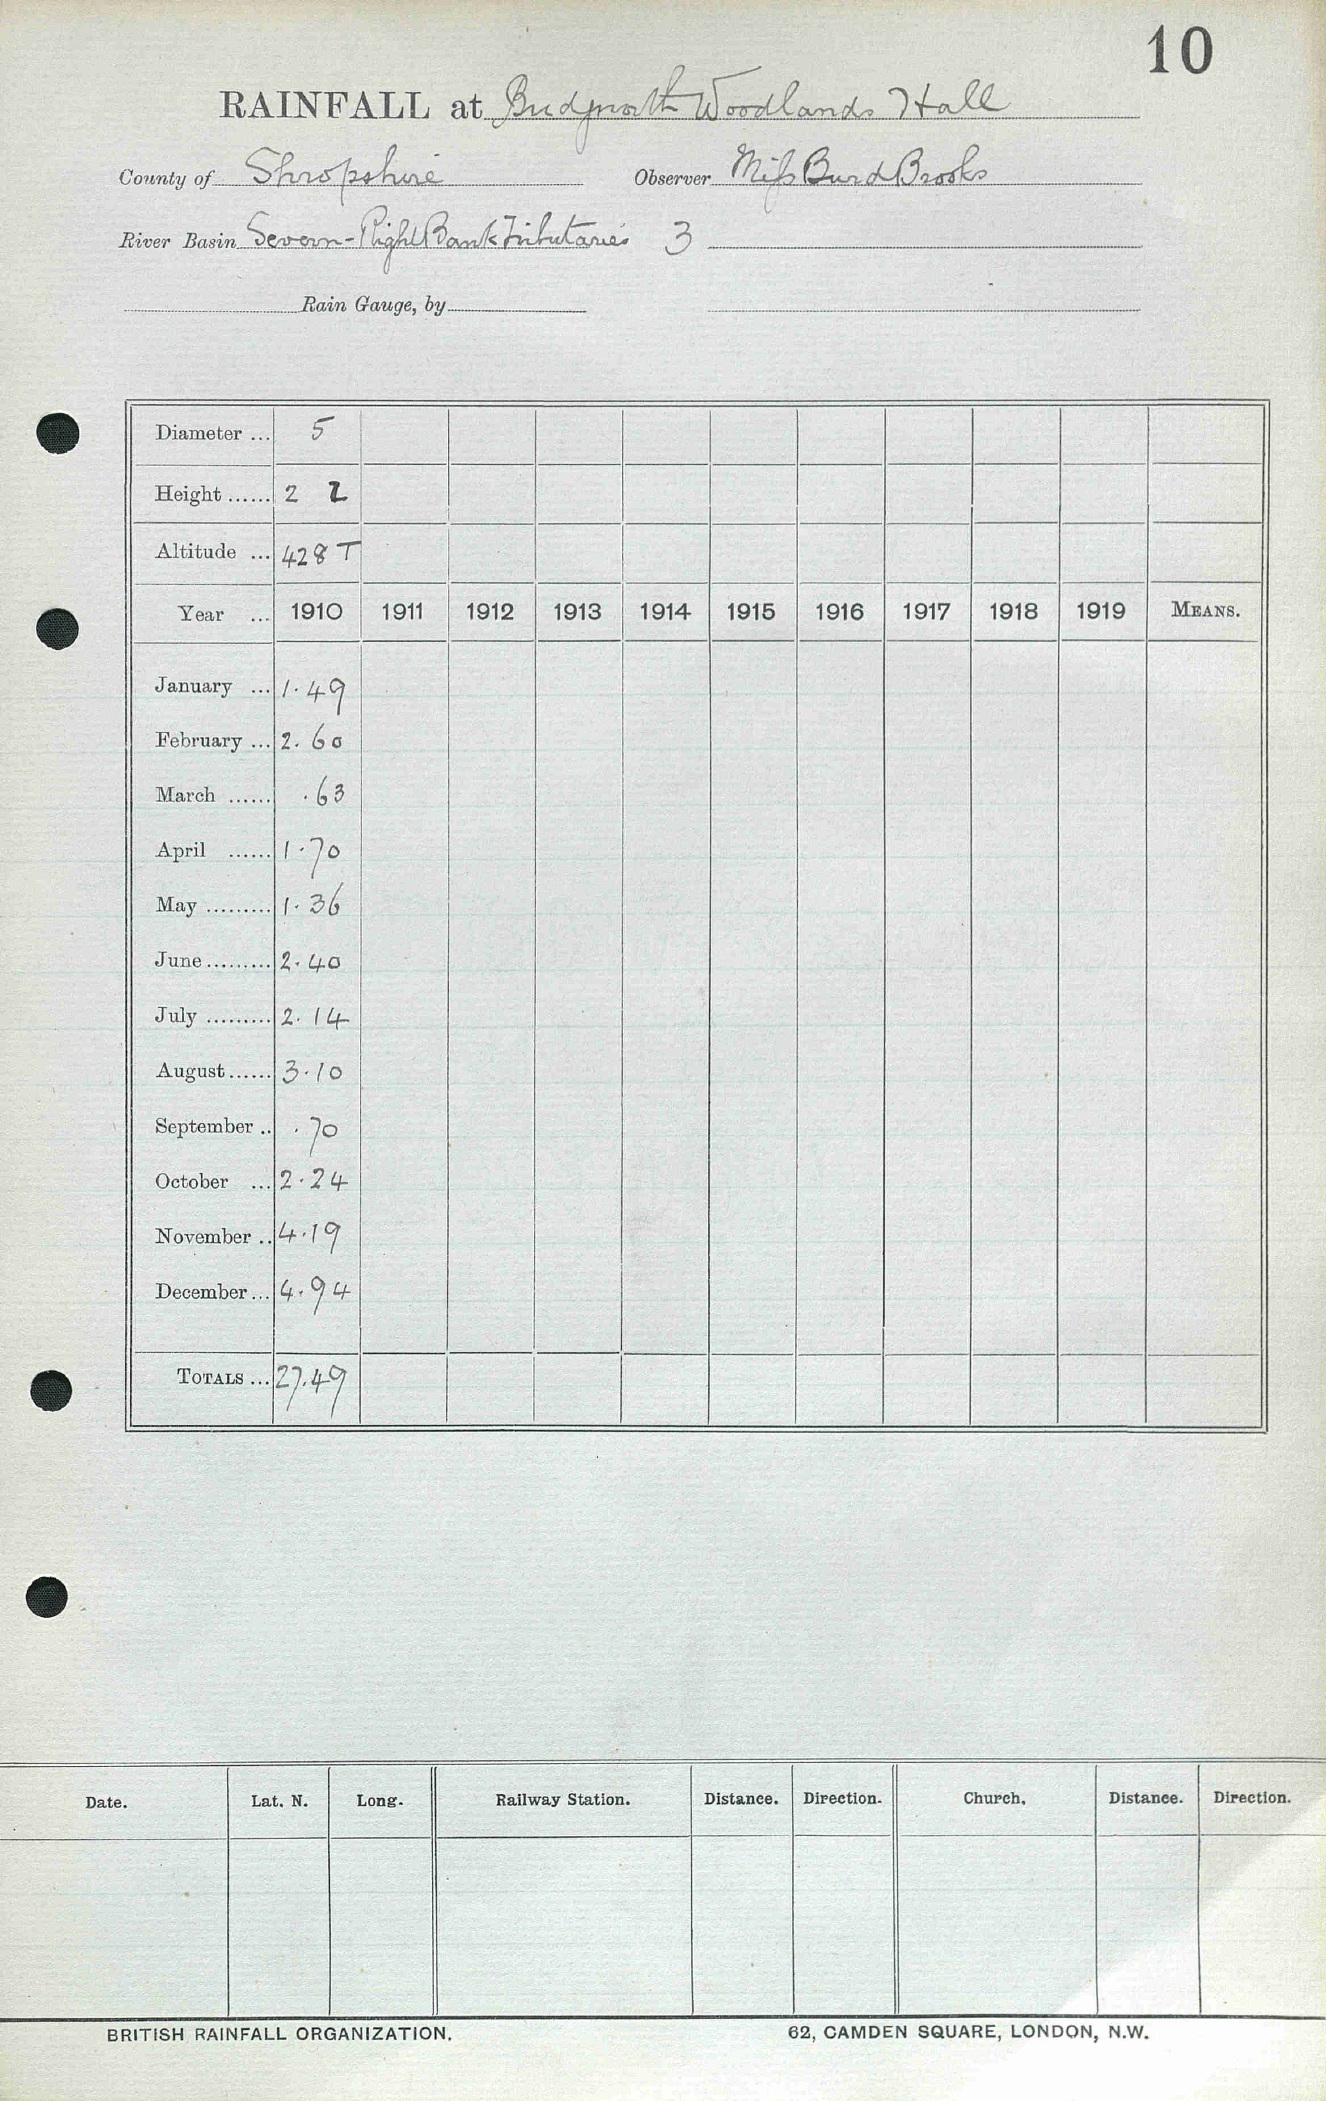 10
RAINFALL at Bridgnorth Woodlands Hall
County of Shropshire Observer Miss Burd Brooks
River Basin Severn-Right Bank Tributaries 3
Rain Gauge, by
Diameter ... 5
Height ...... 2 2
Altitude ... 428 T
Year ... 1910 1911 1912 1913 1914 1915 1916 1917 1918 1919 MEANS.
January ... 1.49
February ... 2.60
March ...... .63
April ...... 1.70
May ......... 1.36
June ......... 2.40
July ......... 2.14
August ...... 3.10
September .. .70
October ... 2.24
November .. 4.19
December ... 4.94
TOTALS ... 27.49
Date. Lat. N. Long. Railway Station. Distance. Direction. Church. Distance. Direction.
BRITISH RAINFALL ORGANIZATION. 62, CAMDEN SQUARE, LONDON, N.W.